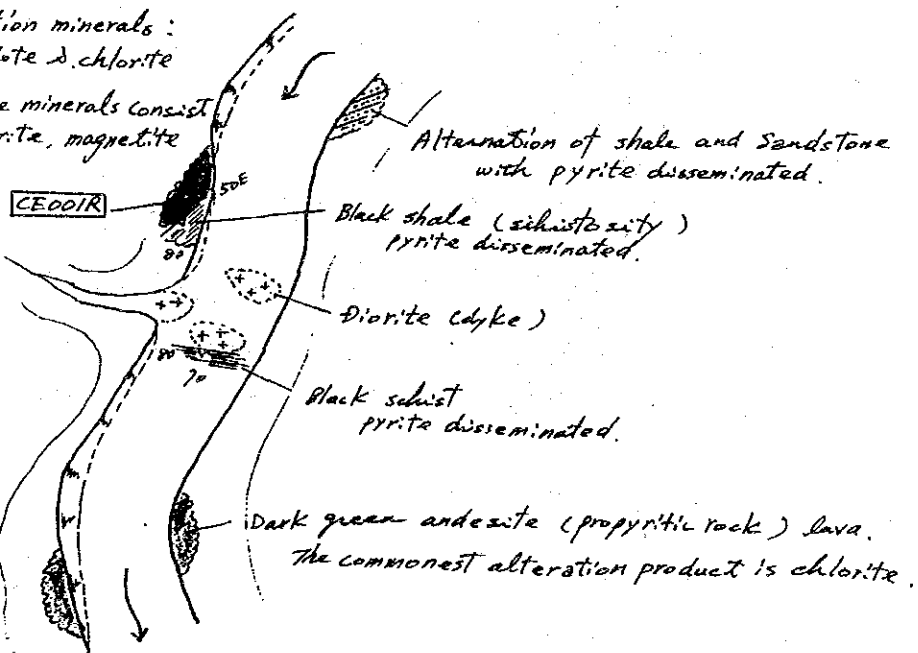 tion minerals :
ote & chlorite
e minerals consist
rite, magnetite
CE001R
50E
80
Alternation of shale and Sandstone
with pyrite disseminated.
Black shale (schistosity)
pyrite disseminated.
Diorite (dyke)
80
70
Black schist
pyrite disseminated.
Dark green andesite (propyritic rock) lava.
The commonest alteration product is chlorite.